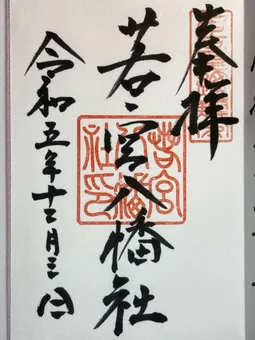 奉拝
若宮八幡社
若宮八幡社印
令和五年十二月三日